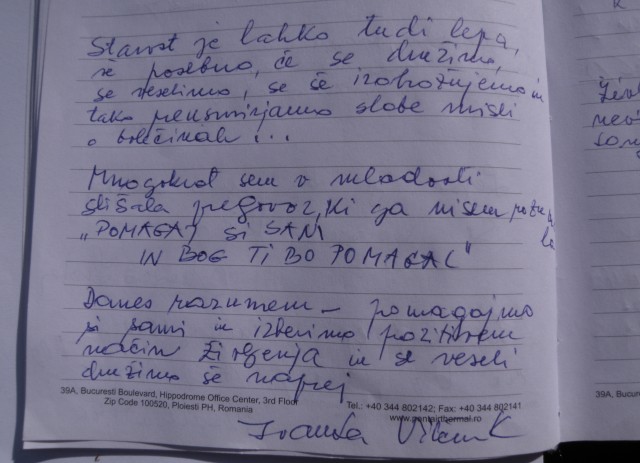 Starost je lahko tudi lepa,
še posebno, če se družimo,
se veselimo, se še izobražujemo in
tako preusmirjamo slabe misli
o bolečinah...
Mnogokrat sem v mladosti
slišala pregovor, ki ga nisem
"POMAGAJ SI SAM
IN BOG TI BO POMAGAL"
Danes razumem - pomagajmo
si sami in izberimo pozitiven
način življenja in se veseli
družimo še naprej
39A, Bucuresti Boulevard, Hippodrome Office Center, 3rd Floor
Zip Code 100520, Ploiesti PH, Romania
Tel.: +40 344 802142; Fax: +40 344 802141
39A, Bucure